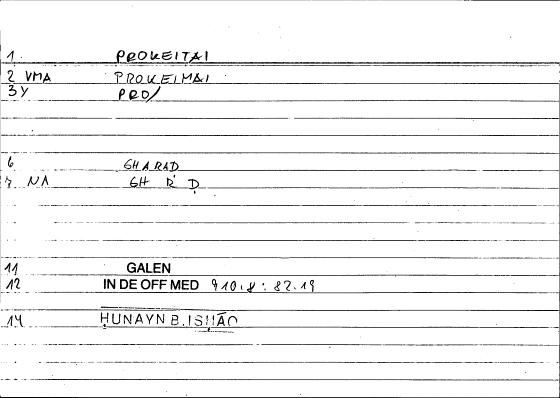 1 PROKEITAI
2 VMA PROKEIMAI
3 Y PRO/
6 GHARAD
7 NA GH R D
11 GALEN
12 IN DE OFF MED 910.8 : 82.19
14 ḤUNAYN B. ISḤĀQ